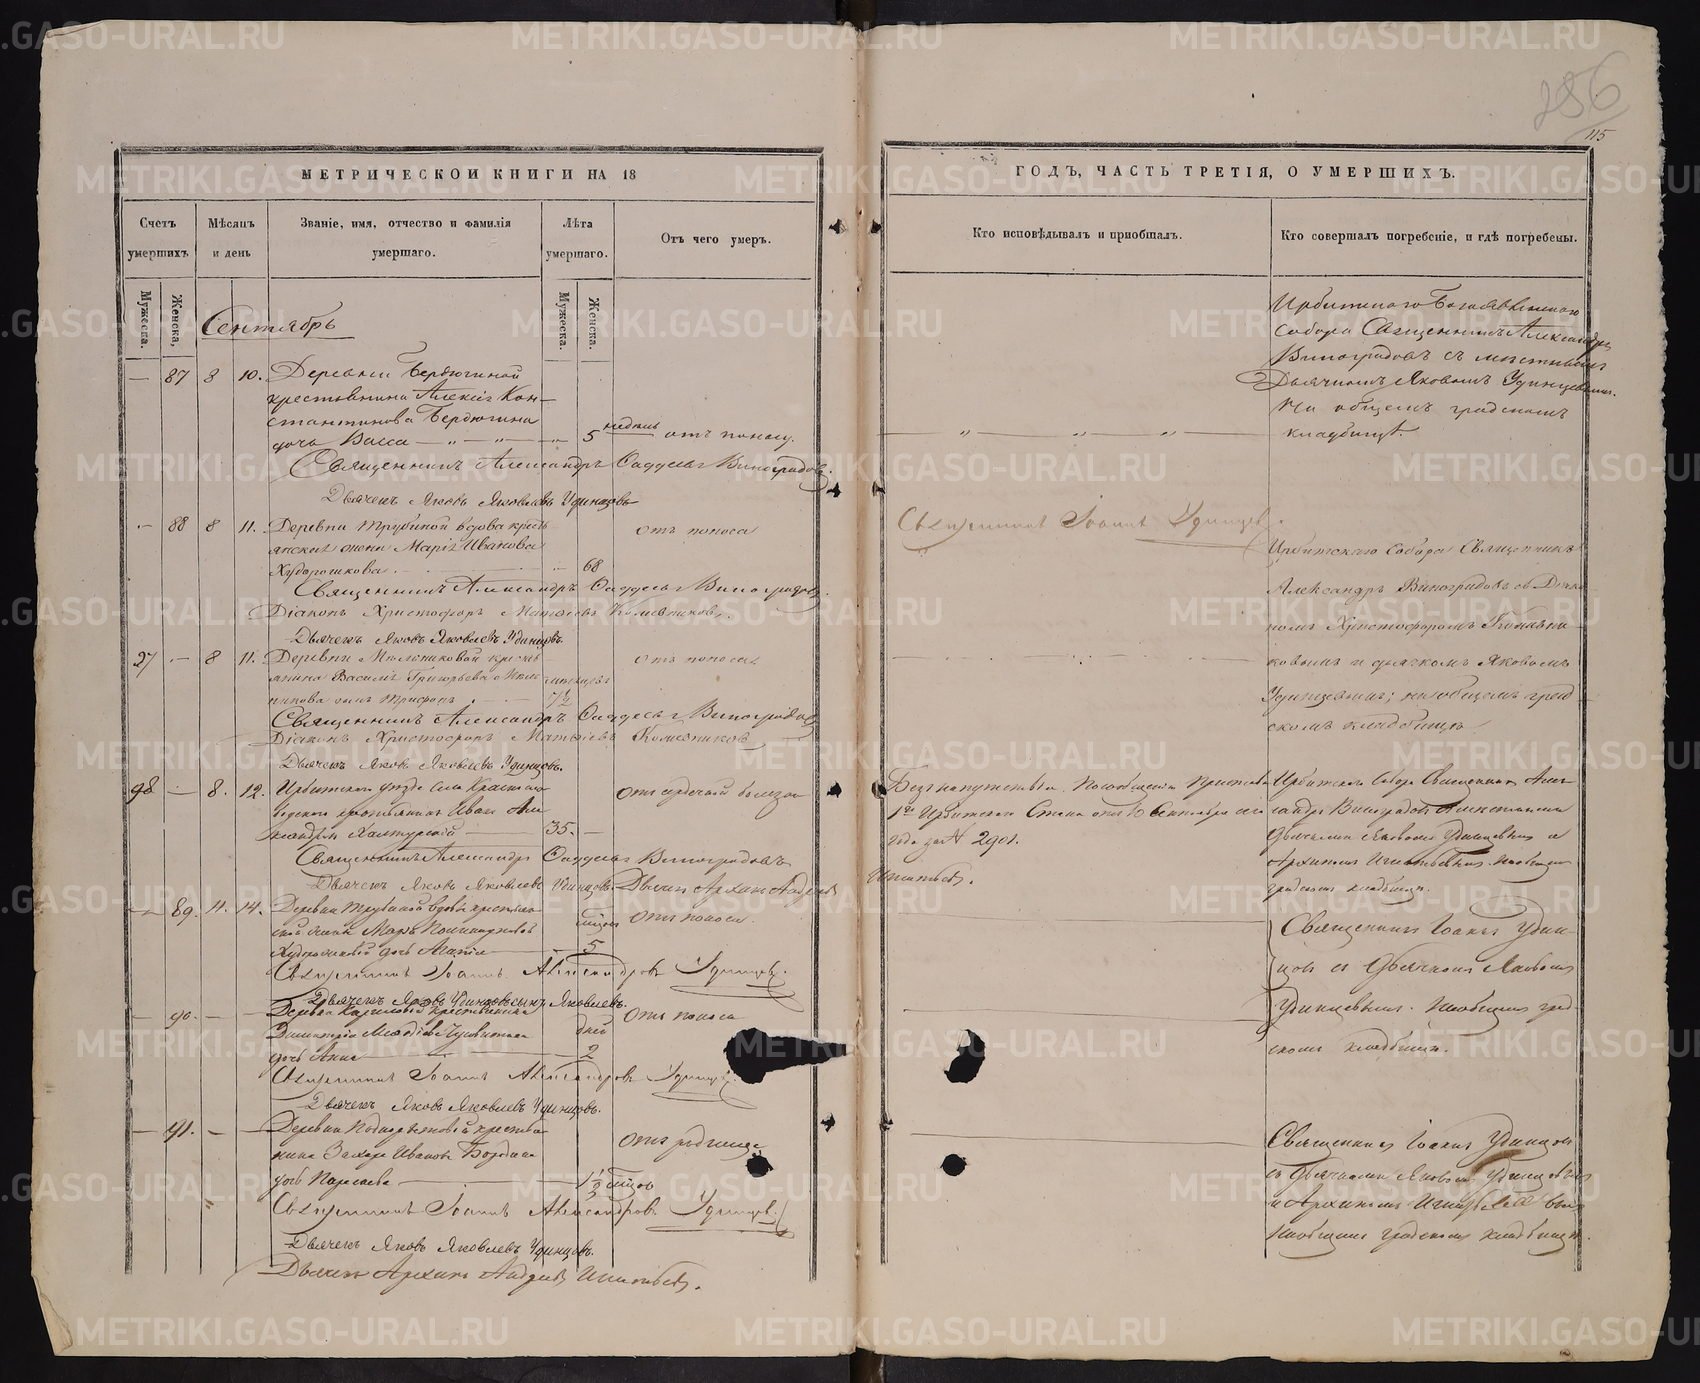 286
115
МЕТРИЧЕСКОЙ КНИГИ НА 18
ГОДЪ, ЧАСТЬ ТРЕТІЯ, О УМЕРШИХЪ.
Счетъ умершихъ
Мѣсяцъ и день
Званіе, имя, отчество и фамилія умершаго.
Лѣта умершаго.
Отъ чего умеръ.
Кто исповѣдывалъ и пріобщалъ.
Кто совершалъ погребеніе, и гдѣ погребены.
Мужеска.
Женска,
Мужеска.
Женска.
Сентябрь
— 87 8 10. Деревни Бердюгиной
крестьянина Алексія Кон-
стантинова Бердюгина
дочь Васса — „ — „ — 5 недѣль отъ поносу.
Ирбитскаго Богоявленскаго
Собора Священникъ Александръ
Виноградовъ съ мѣстнымъ
Дьячкомъ Яковомъ Удинцевымъ.
На общемъ градскомъ
кладбищѣ.
Священникъ Александръ Ѳаддеевъ Виноградовъ.
Дьячекъ Яковъ Яковлевъ Удинцовъ
— 88 8 11. Деревни Трубиной вдова кресть
янская жена Марія Иванова
Худорошкова 68
отъ поноса
Священникъ Іоаннъ Удинцевъ.
Ирбитскаго Собора Священникъ
Александръ Виноградовъ съ Діако
номъ Христофоромъ
ковымъ и дьячкомъ Яковомъ
Удинцевымъ; на общемъ град
скомъ кладбищѣ
Священникъ Александръ Ѳаддеевъ Виноградовъ.
Діаконъ Христофоръ Матѳіевъ
Дьячекъ Яковъ Яковлевъ Удинцовъ.
27 — 8 11. Деревни Мельниковой кресть
янина Василія Григорьева Мель
никова сынъ Трифонъ
мѣсяцевъ
7½
отъ поноса
Священникъ Александръ Ѳаддеевъ Виноградовъ
Діаконъ Христофоръ Матѳіевъ
Дьячекъ Яковъ Яковлевъ Удинцовъ.
98 — 8. 12. Ирбитскаго уѣзда Села
крестьянинъ Иванъ Але
ксандровъ 35. —
отъ сердечной болезни
1го Ирбитскаго Стана отъ 10 Сентября сего
года за № 2901.
Ирбитскаго Собора Священникъ Алек
сандръ Виноградовъ
дьячками Яковомъ Удинцевымъ и
Архипомъ Игнатьевымъ. На общемъ
градскомъ кладбищѣ.
Священникъ Александръ Ѳаддеевъ Виноградовъ
Дьячекъ Яковъ Яковлевъ Удинцовъ. Дьячекъ Архипъ Андреевъ
Игнатьевъ.
— 89. 11. 14. Деревни Трубиной вдовы крестьян
ской жены
дочь Агапія — 5
отъ поноса.
Священникъ Іоаннъ Удин-
цовъ съ дьячкомъ Яковомъ
Удинцевымъ. На общемъ град
скомъ кладбищѣ.
Священникъ Іоаннъ Александровъ Удинцовъ.
Дьячекъ Яковъ Удинцовъ сынъ Яковлевъ.
— 90. — — Деревни крестьянина
Димитрія
дочь Анна — 2
дней
отъ поноса
Священникъ Іоаннъ Александровъ Удинцевъ.
Дьячекъ Яковъ Яковлевъ Удинцовъ.
— 91. — — Деревни крестья
нина Захара Иванова
дочь — 1½ мѣсцовъ
отъ родимца
Священникъ Іоаннъ Удинцовъ
съ дьячками Яковомъ Удинцовымъ
и Архипомъ Игнатьевымъ
На общемъ градскомъ кладбищѣ.
Священникъ Іоаннъ Александровъ Удинцовъ.
Дьячекъ Яковъ Яковлевъ Удинцовъ.
Дьячекъ Архипъ Андреевъ Игнатьевъ.
METRIKI.GASO-URAL.RU